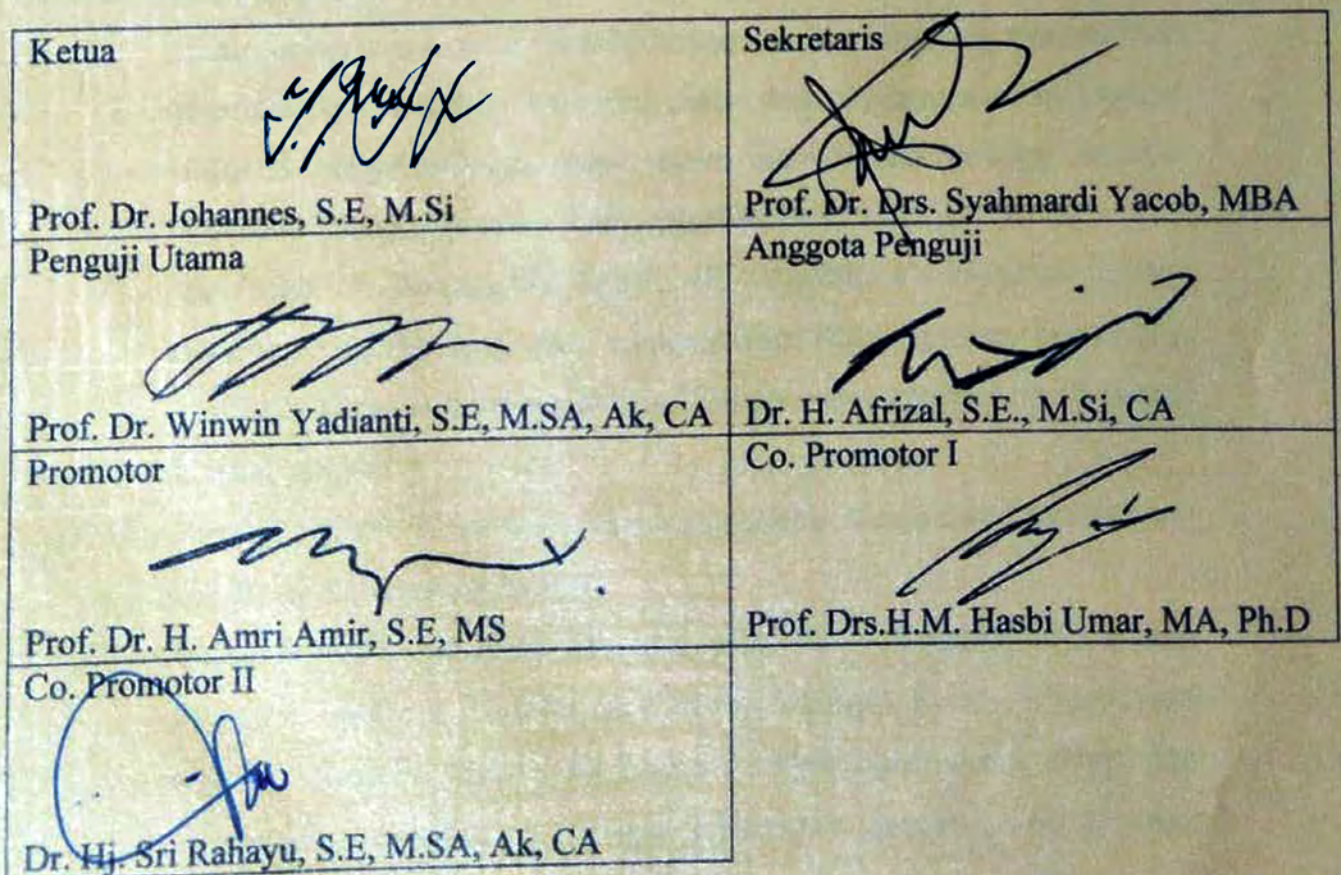 Ketua
Prof. Dr. Johannes, S.E, M.Si
Sekretaris
Prof. Dr. Drs. Syahmardi Yacob, MBA
Penguji Utama
Prof. Dr. Winwin Yadianti, S.E, M.SA, Ak, CA
Anggota Penguji
Dr. H. Afrizal, S.E., M.Si, CA
Promotor
Prof. Dr. H. Amri Amir, S.E, MS
Co. Promotor I
Prof. Drs.H.M. Hasbi Umar, MA, Ph.D
Co. Promotor II
Dr. Hj. Sri Rahayu, S.E, M.SA, Ak, CA